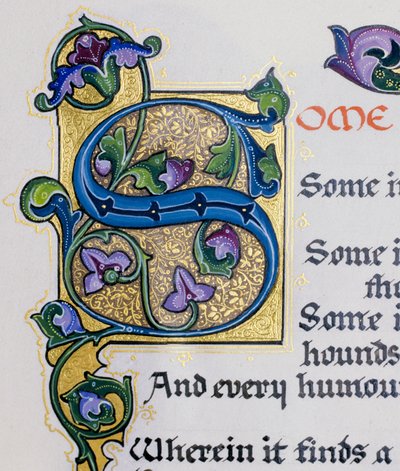 SOME
Some i
Some i
tho
Some i
hounds
And every humou
Wherein it finds a